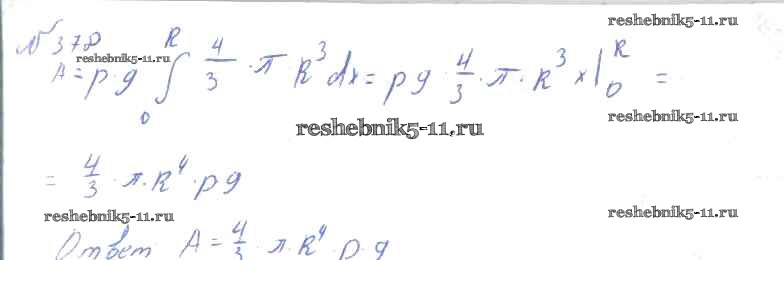 reshebnik5-11.ru
№378
reshebnik5-11.ru
A = p·g ∫₀ᴿ 4/3 · π · R³ dx = pg · 4/3 · π · R³ x |₀ᴿ =
reshebnik5-11.ru
reshebnik5-11.ru
= 4/3 · π · R⁴ · pg
reshebnik5-11.ru
reshebnik5-11.ru
Ответ A = 4/3 · π · R⁴ · p · g